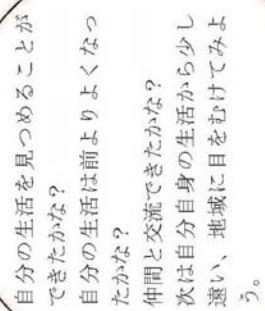 自分の生活を見つめることが
できたかな?
自分の生活は前よりよくなっ
たかな?
仲間と交流できたかな?
次は自分自身の生活から少し
遠い、地域に目をむけてみよ
う。